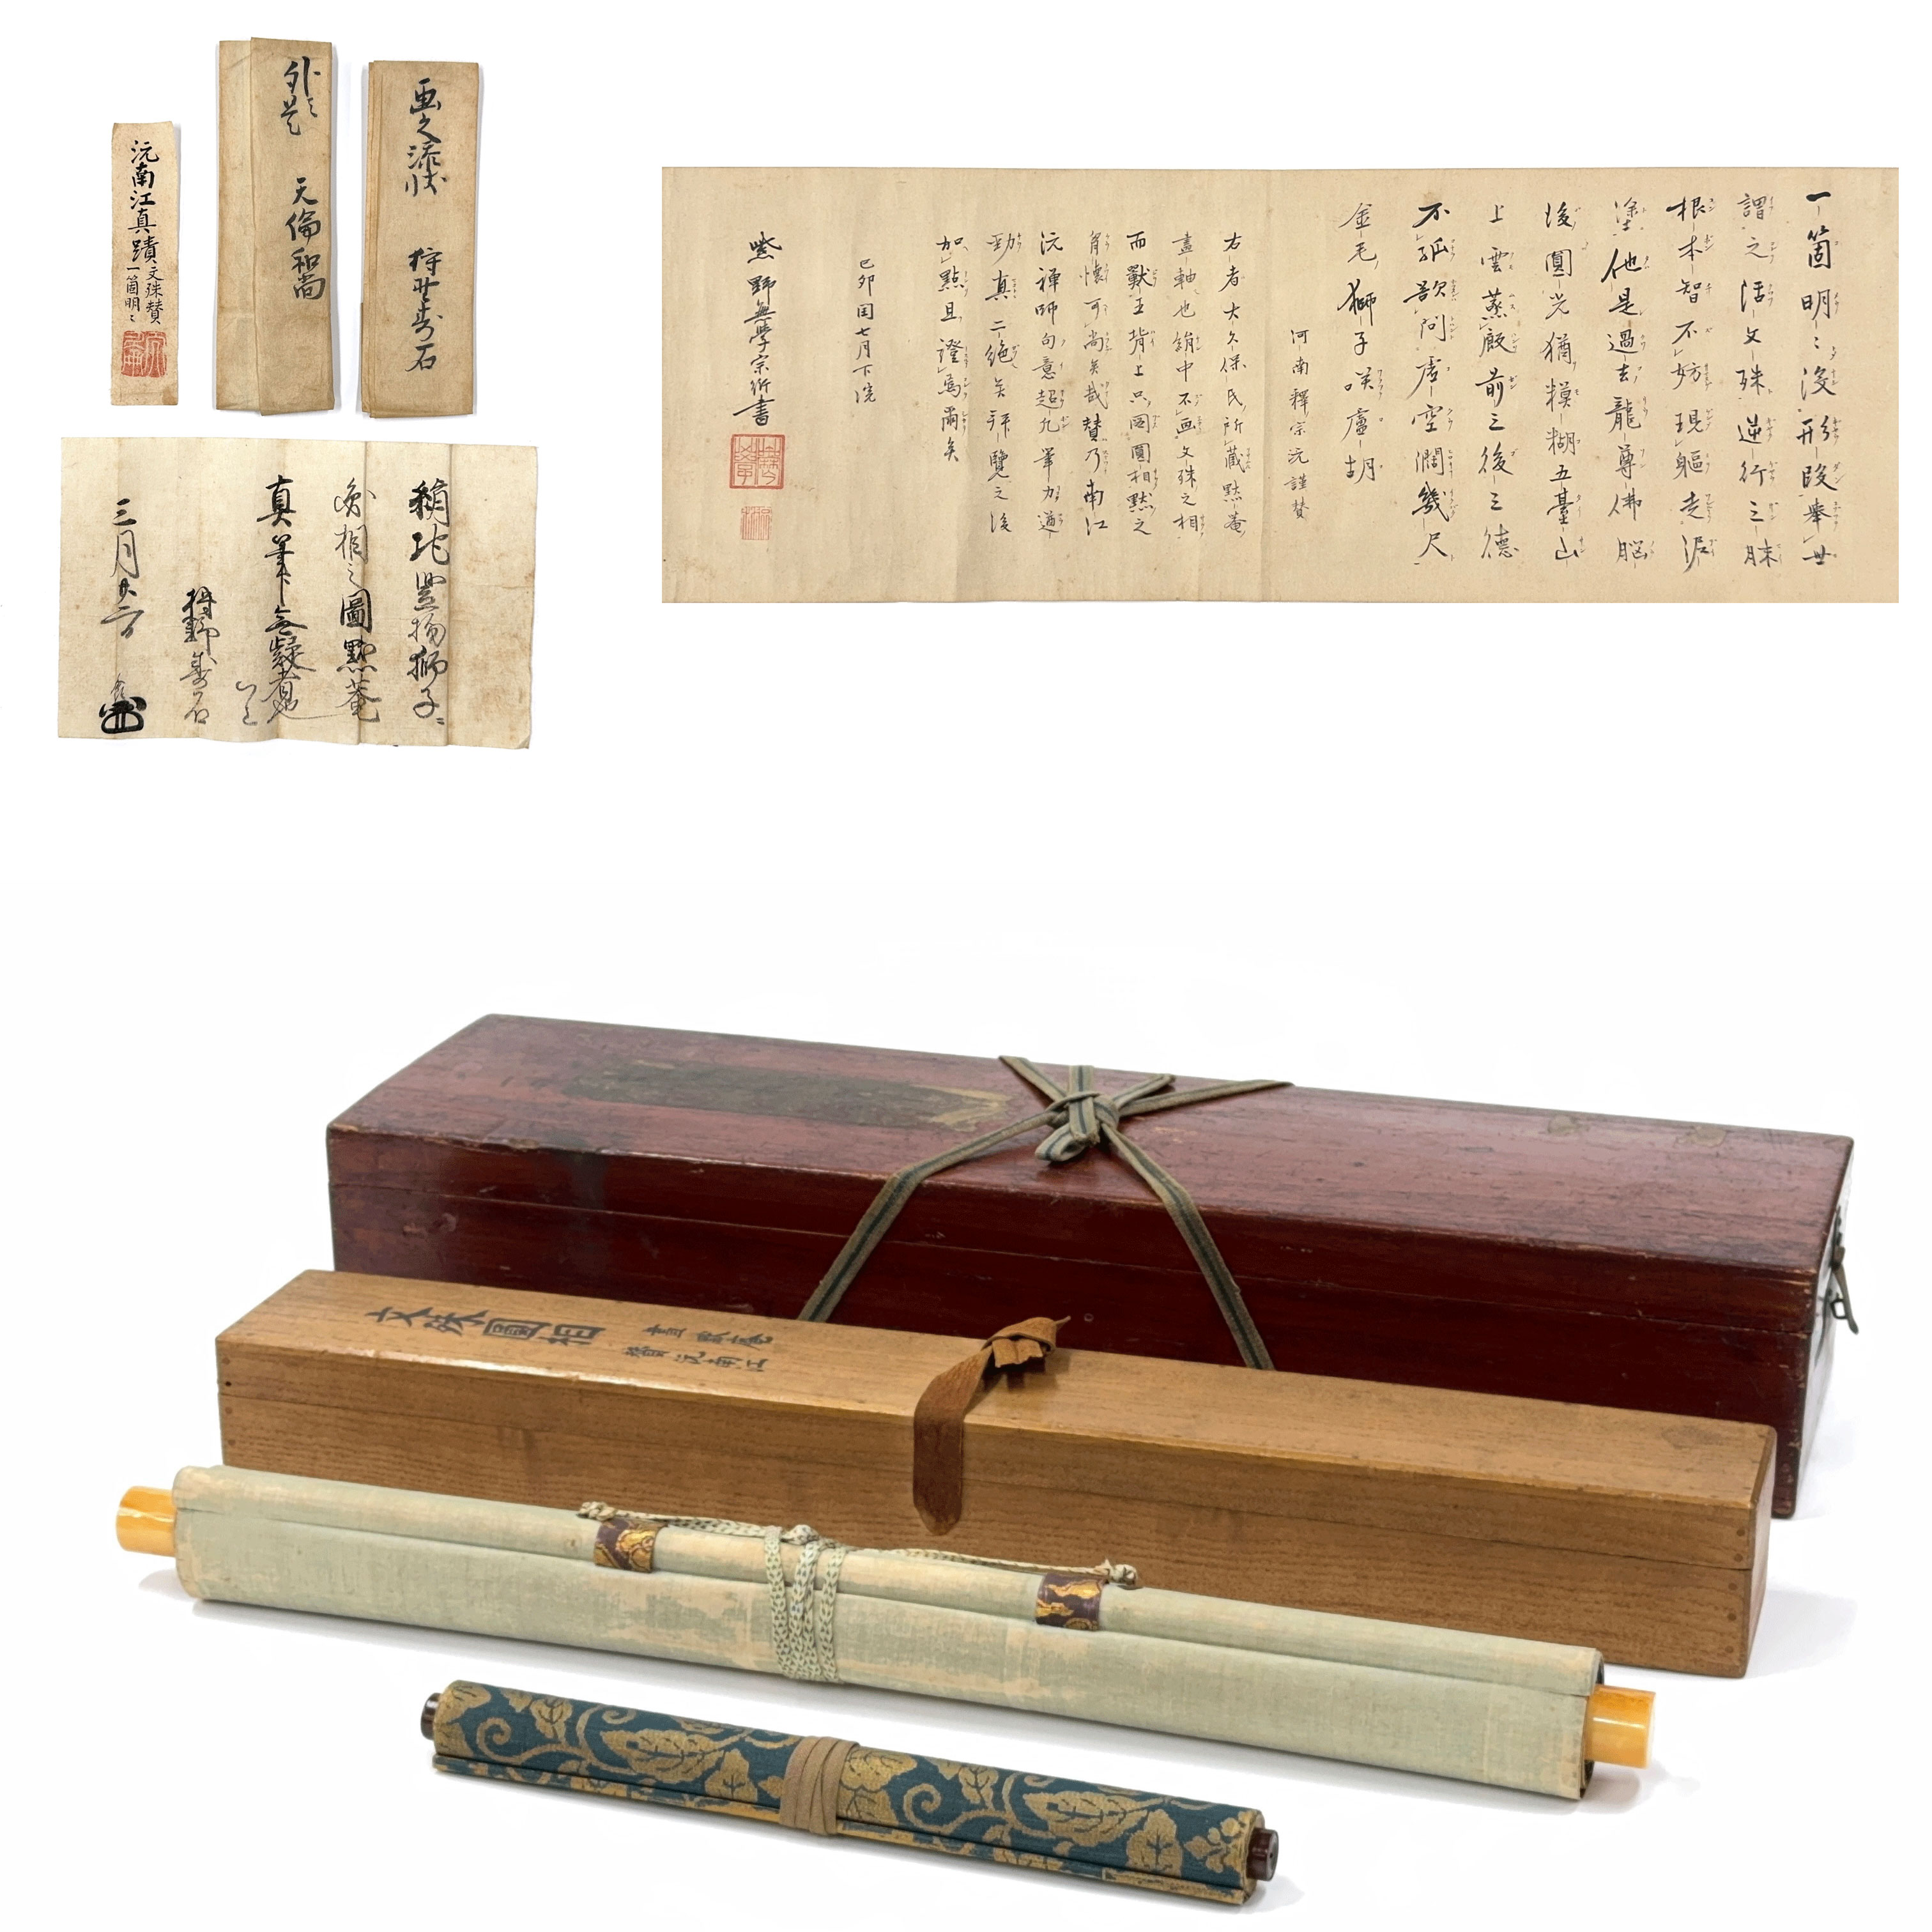 沅南江真蹟
文殊賛
一箇明〻
外題 天倫和尚
画之添状 狩野寿石
獅子
圓相之圖黙菴
真筆無疑者也
狩野寿石
三月廿六日
一箇明〻沒形段舉世
謂之活文殊逆行三昧
根本智不妨現軀走泥
塗他是過去龍尊佛腦
後圓光猶糢糊五臺山
上雲蒸廄前三後三德
不孤欲問虚空濶幾尺
金毛獅子咲盧胡
河南釋宗沅謹賛
右者大久保氏所藏黙菴
畫軸也絹中不画文殊之相
而獸王背上只圖圓相黙之
胷懷可尚矣哉賛乃南江
沅禪師句意超凢筆力遒
勁真二絶矣拜覽之後
加點且證焉爾矣
己卯閏七月下浣
紫野無學宗衍書
文殊圓相
畫黙庵
賛沅南江